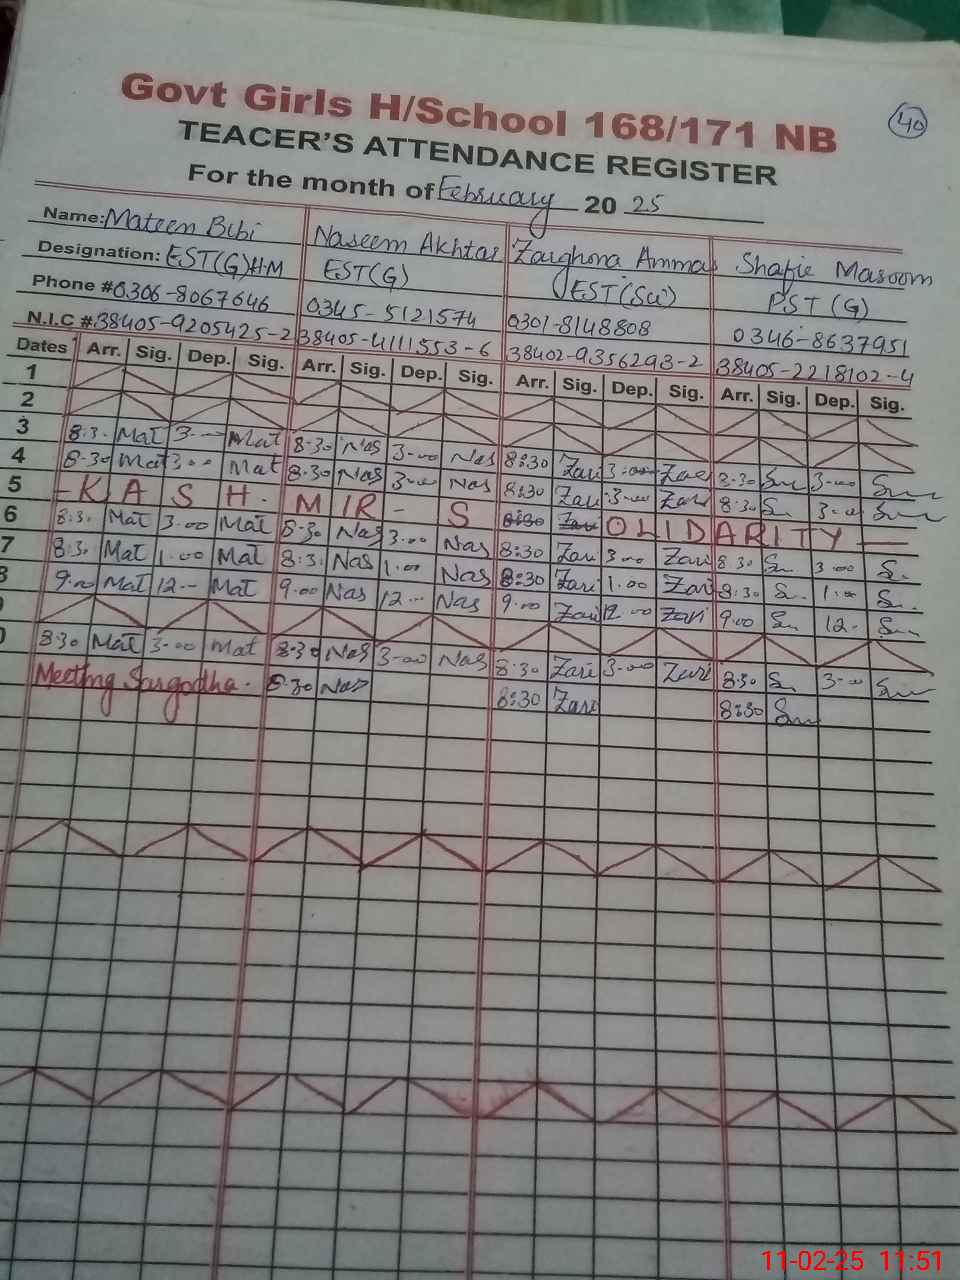 Govt Girls H/School 168/171 NB
40
TEACER'S ATTENDANCE REGISTER
For the month of February 20 25
Name: Mateen Bibi Naseem Akhtar Zarghona Ammar Shafie Masoom
Designation: EST(G)HM EST(G) EST(Sci) PST (G)
Phone # 0306-8067646 0345-5121574 0301-8148808 0346-8637951
N.I.C # 38405-9205425-2 38405-4111553-6 38402-9356293-2 38405-2218102-4
Dates Arr. Sig. Dep. Sig. Arr. Sig. Dep. Sig. Arr. Sig. Dep. Sig. Arr. Sig. Dep. Sig.
1
2
3 8:3. Mat 3-00 Mat 8-30 Nas 3-00 Nas 8:30 Zari 3-00 Zari 8-30 3-00
4 8-30 Mat 3-00 Mat 8:30 Nas 3-00 Nas 8:30 Zari 3-00 Zari 8:30 3-00
5 -KASH-MIR-S OLIDARITY-
6 8:3. Mat 3-00 Mat 8-30 Nas 3-00 Nas 8:30 Zari 3-00 Zari 8.30 3-00
7 8:3. Mat 1.00 Mat 8:3. Nas 1.00 Nas 8:30 Zari 1.00 Zari 8:30 1-00
8 9.00 Mat 12-- Mat 9.00 Nas 12-- Nas 9.00 Zari 12.00 Zari 9.00 12-
8:30 Mat 3-00 Mat 8:30 Nas 3-00 Nas 8:30 Zari 3-00 Zari 8:30 3-00
Meeting Sargodha. 8.30 Nas 8:30 Zari 8:30
11-02-25 11:51